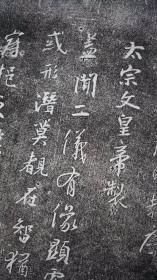 太宗文皇帝製
蓋聞二儀有像顯
惑形潛莫覩在智猶
寂挹之